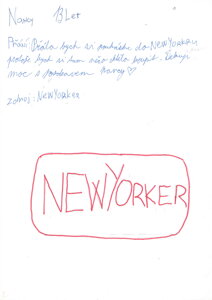 13 Let
Přání: Přála bych si poukázku do NEWYORKERU,
protože bych si tam něco chtěla koupit. Děkuji
moc s pozdravem
zdroj: NEWYORKER
NEWYORKER